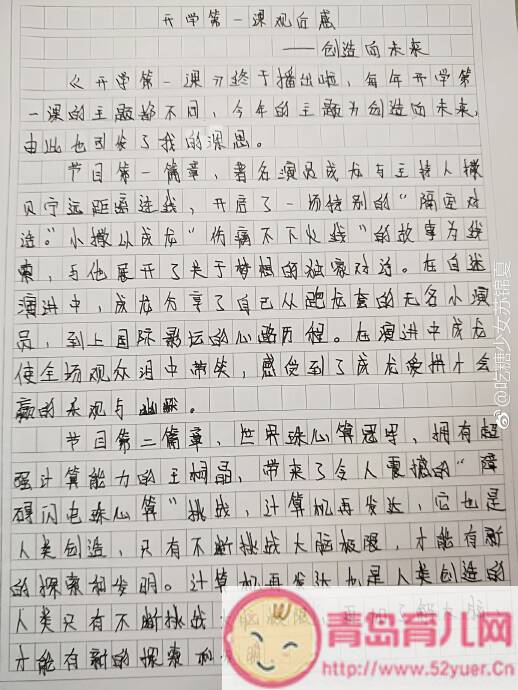 开学第一课观后感
——创造向未来
《开学第一课》终于播出啦，每年开学第
一课的主题都不同，今年的主题为创造向未来，
由此也引发了我的深思。
节目第一篇章，著名演员成龙与主持人撒
贝宁远距离连线，开启了一场特别的“隔空对
话。”小撒以成龙“伤痛不下火线”的故事为线
索，与他展开了关于梦想的独家对话。在自述
演讲中，成龙分享了自己从跑龙套的无名小演
员，到上国际影坛的心路历程。在演讲中成龙
使全场观众泪中带笑，感受到了成龙爱拼才会
赢的乐观与幽默。
节目第二篇章，世界珠心算冠军，拥有超
强计算能力的王桐晶，带来了令人震撼的“障
碍闪电珠心算”挑战，计算机再发达，它也是
人类创造，只有不断挑战大脑极限，才能有新
的探索和发明。计算机再发达也是人类创造的
人类只有不断挑战大脑极限，
才能有新的探索和发明
@吃糖少女苏锦夏
青岛育儿网
http://www.52yuer.Cn